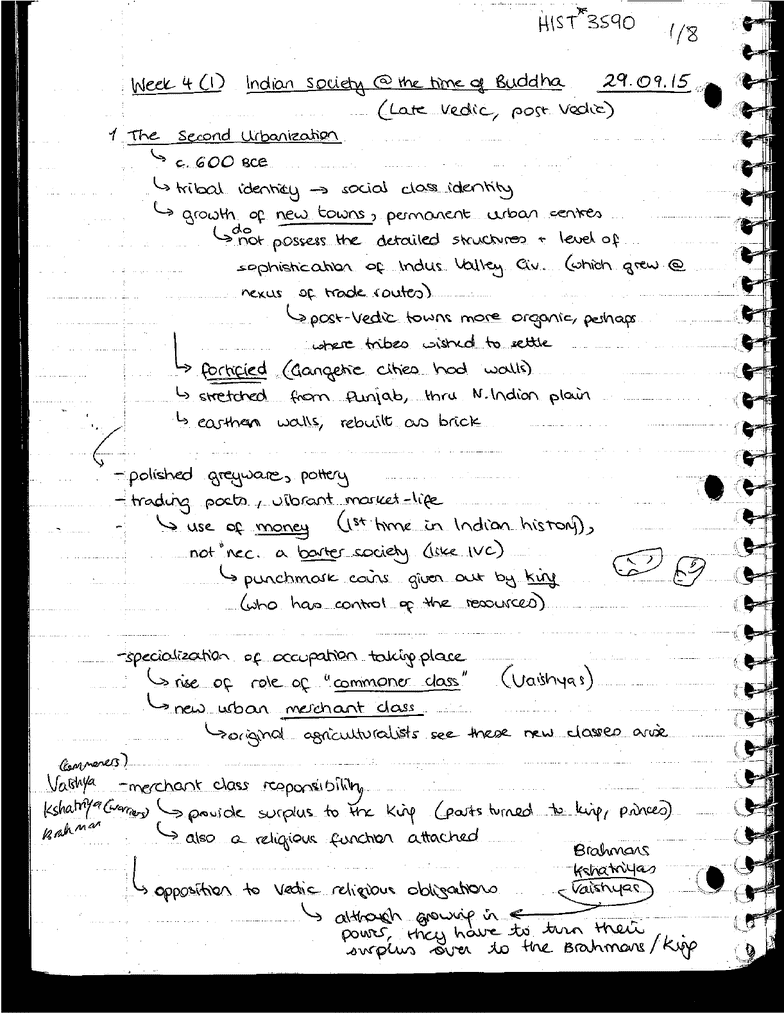 HIST*3590 1/8
Week 4 (1) Indian Society @ the time of Buddha 29.09.15
(Late Vedic, post Vedic)
1 The Second Urbanization
↳ c. 600 BCE
↳ tribal identity → social class identity
↳ growth of new towns, permanent urban centres
↳ do not possess the detailed structures + level of
sophistication of Indus Valley Civ. (which grew @
nexus of trade routes)
↳ post-Vedic towns more organic, perhaps
where tribes wished to settle
↳ fortified (Gangetic cities had walls)
↳ stretched from Punjab, thru N. Indian plain
↳ earthen walls, rebuilt as brick
- polished greyware, pottery
- trading posts, vibrant market-life
- ↳ use of money (1st time in Indian history),
not "nec. a barter society (like IVC)
↳ punchmark coins given out by king
(who has control of the resources)
- specialization of occupation taking place
↳ rise of role of "commoner class" (Vaishyas)
↳ new urban merchant class
↳ original agriculturalists see these new classes arise
(commoners)
Vaishya
Kshatriya (warriors)
Brahman
- merchant class responsibility
↳ provide surplus to the King (parts turned to king, princes)
↳ also a religious function attached
Brahmans
Kshatriyas
Vaishyas
↳ opposition to Vedic religious obligations
↳ although growing in
power, they have to turn their
surplus over to the Brahmans/King